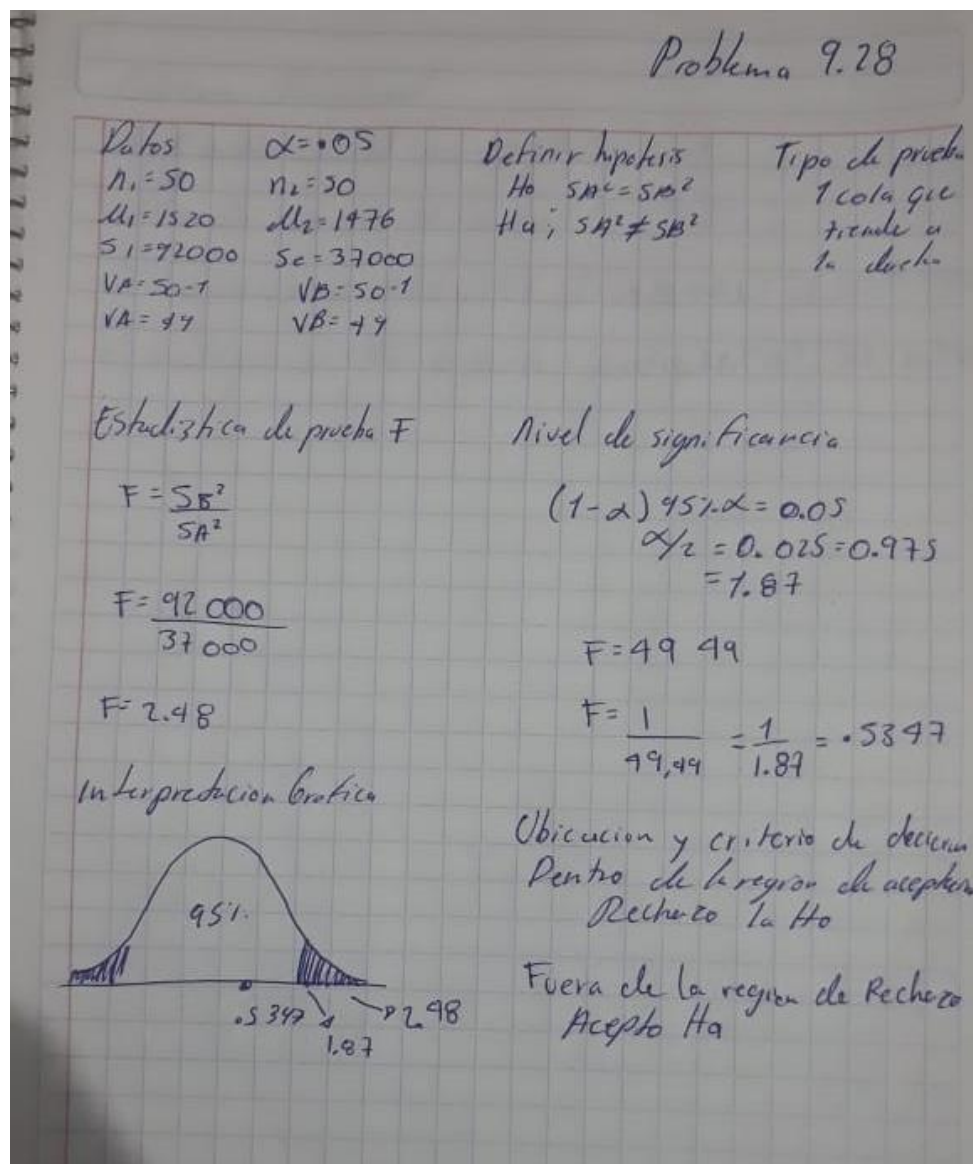 Problema 9.28
Datos
α=.05
n₁=50
n₂=50
M₁=1520
M₂=1476
S₁=92000
Sc=37000
VA=50-1
VB=50-1
VA=49
VB=49
Definir hipotesis
Ho SA²=SB²
Ha; SA²≠SB²
Tipo de prueba
1 cola que
tiende a
la
Estadiztica de prueba F
F=SB²
SA²
F=92 000
37 000
F=2.48
Nivel de significancia
(1-α) 95%.α=0.05
α/2=0.025=0.975
=1.87
F=49 49
F= 1 = 1 = .5347
49,49 1.87
Interpretacion Grafica
95%.
.5347
1.87
2.48
Ubicacion y criterio de decicion
Dentro de la region de
Rechazo la Ho
Fuera de la region de Rechazo
Acepto Ha